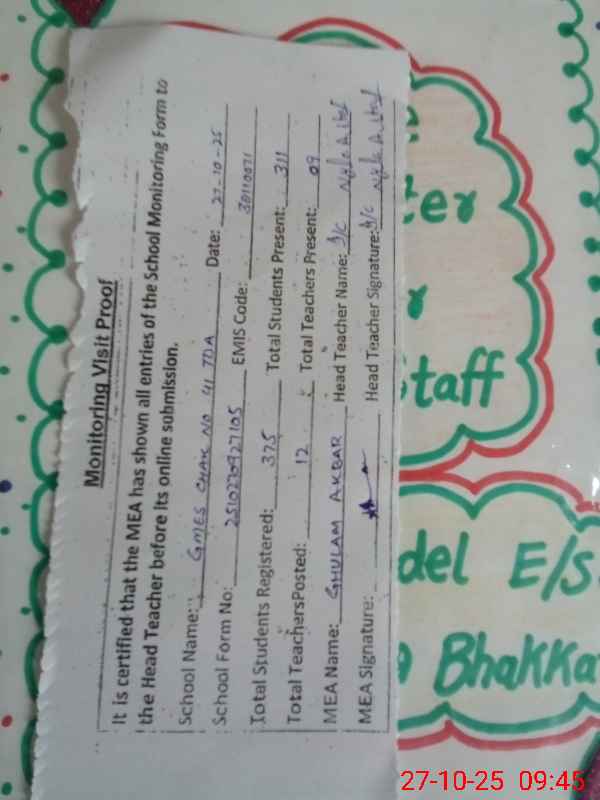 Monitoring Visit Proof
It is certified that the MEA has shown all entries of the School Monitoring Form to
the Head Teacher before its online submission.
School Name: GMES CHAK NO 41 TDA Date: 27-10-25
School Form No: 2510230927105 EMIS Code: 30110071
Total Students Registered: 375 Total Students Present: 311
Total TeachersPosted: 12 Total Teachers Present: 09
MEA Name: GHULAM AKBAR Head Teacher Name: I/C
MEA Signature: Head Teacher Signature: I/C
ter
r
taff
del E/S
Bhakka
27-10-25 09:45